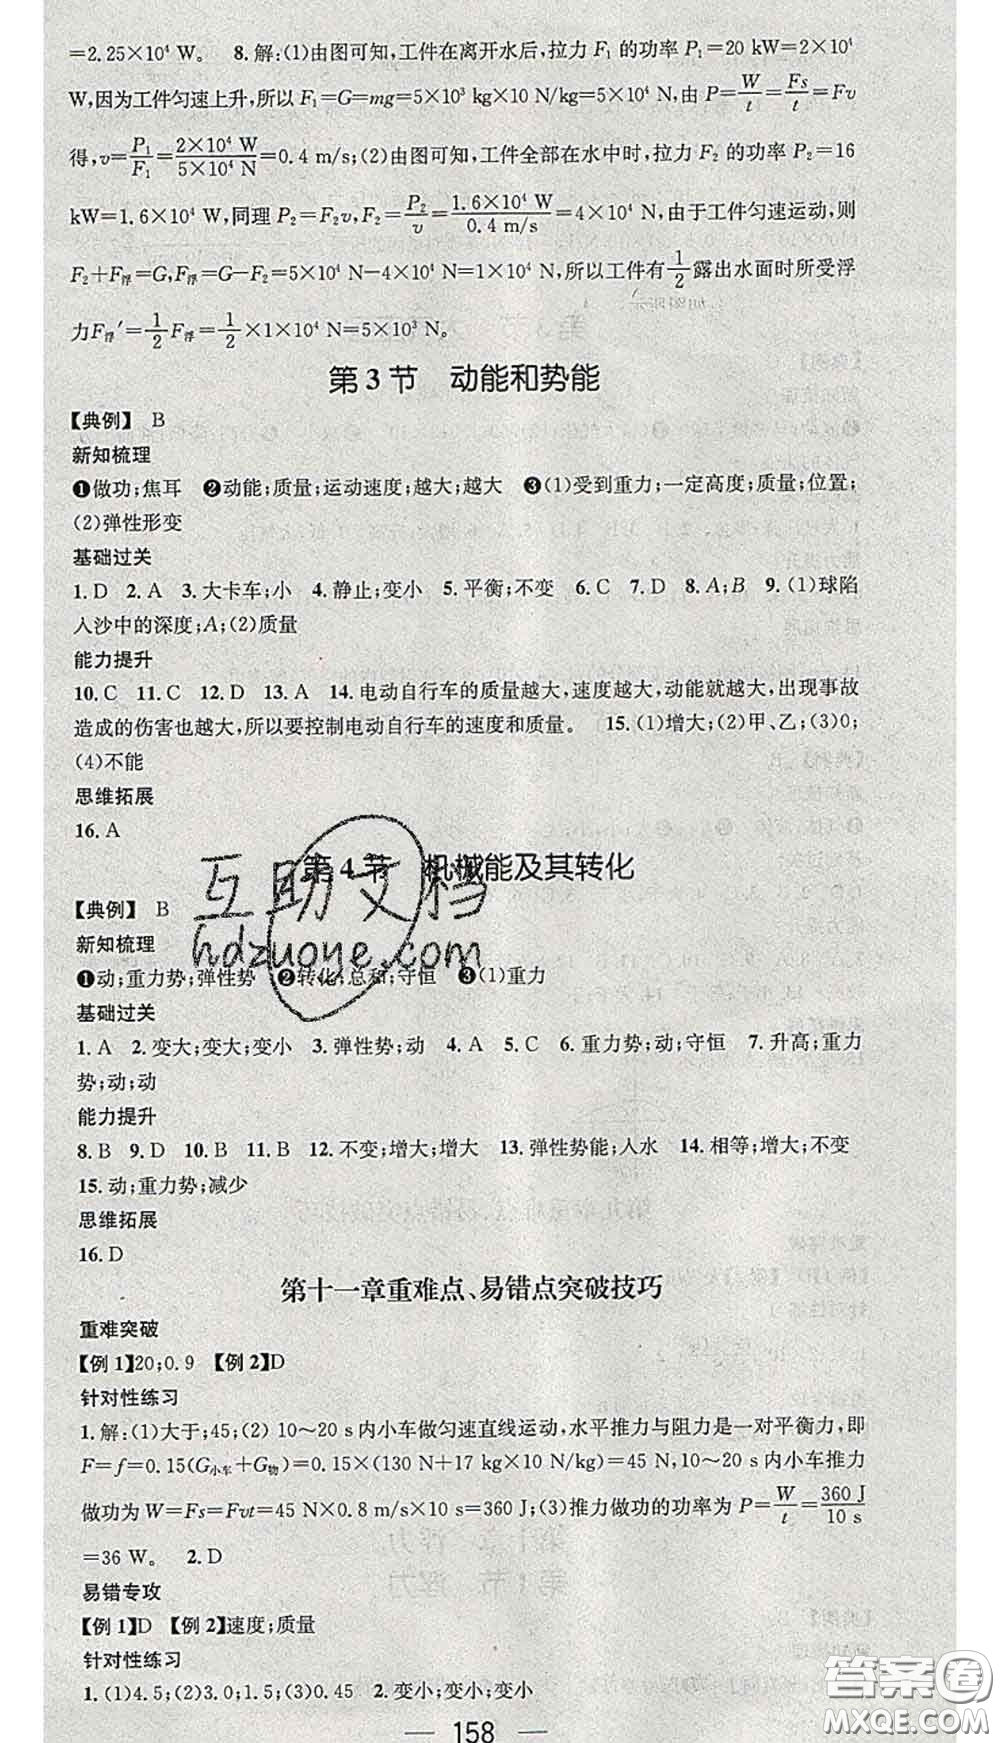 =2.25×10⁴ W。 8.解:(1)由图可知,工件在离开水后,拉力 F₁ 的功率 P₁=20 kW=2×10⁴
W,因为工件匀速上升,所以 F₁=G=mg=5×10³ kg×10 N/kg=5×10⁴ N,由 P=W/t=Fs/t=Fv
得,v=P₁/F₁=2×10⁴ W/5×10⁴ N=0.4 m/s;(2)由图可知,工件全部在水中时,拉力 F₂ 的功率 P₂=16
kW=1.6×10⁴ W,同理 P₂=F₂v,F₂=P₂/v=1.6×10⁴ W/0.4 m/s=4×10⁴ N,由于工件匀速运动,则
F₂+F浮=G,F浮=G-F₂=5×10⁴ N-4×10⁴ N=1×10⁴ N,所以工件有1/2露出水面时所受浮
力F浮′=1/2F浮=1/2×1×10⁴ N=5×10³ N。
第 3 节 动能和势能
【典例】 B
新知梳理
❶做功;焦耳 ❷动能;质量;运动速度;越大;越大 ❸(1)受到重力;一定高度;质量;位置;
(2)弹性形变
基础过关
1.D 2.A 3.大卡车;小 4.静止;变小 5.平衡;不变 6.C 7.D 8.A;B 9.(1)球陷
入沙中的深度;A;(2)质量
能力提升
10.C 11.C 12.D 13.A 14.电动自行车的质量越大,速度越大,动能就越大,出现事故
造成的伤害也越大,所以要控制电动自行车的速度和质量。 15.(1)增大;(2)甲、乙;(3)0;
(4)不能
思维拓展
16.A
第 4 节 机械能及其转化
互助文档
hdzuoye.com
【典例】 B
新知梳理
❶动;重力势;弹性势 ❷转化;总和;守恒 ❸(1)重力
基础过关
1.A 2.变大;变大;变小 3.弹性势;动 4.A 5.C 6.重力势;动;守恒 7.升高;重力
势;动;动
能力提升
8.B 9.D 10.B 11.B 12.不变;增大;增大 13.弹性势能;人水 14.相等;增大;不变
15.动;重力势;减少
思维拓展
16.D
第十一章重难点、易错点突破技巧
重难突破
【例 1】20;0.9 【例 2】D
针对性练习
1.解:(1)大于;45;(2) 10～20 s 内小车做匀速直线运动,水平推力与阻力是一对平衡力,即
F=f=0.15(G小车+G物)=0.15×(130 N+17 kg×10 N/kg)=45 N,10～20 s 内小车推力
做功为 W=Fs=Fvt=45 N×0.8 m/s×10 s=360 J;(3)推力做功的功率为 P=W/t=360 J/10 s
=36 W。 2.D
易错专攻
【例 1】D 【例 2】速度;质量
针对性练习
1.(1)4.5;(2)3.0;1.5;(3)0.45 2.变小;变小;变小
— 158 —
答案圈
MXQE.COM